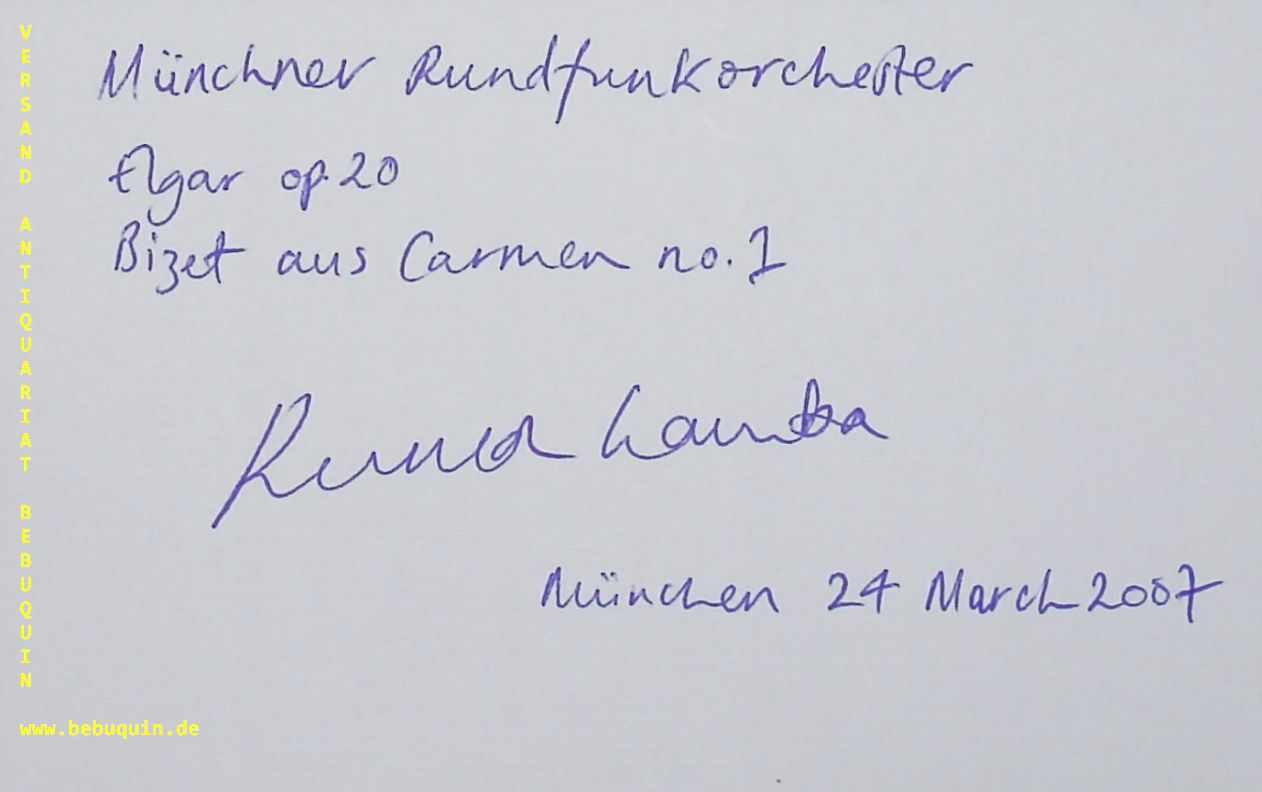 Münchner Rundfunkorchester
Elgar op 20
Bizet aus Carmen no. 1
München 24 March 2007
VERSAND ANTIQUARIAT BEBUQUIN
www.bebuquin.de